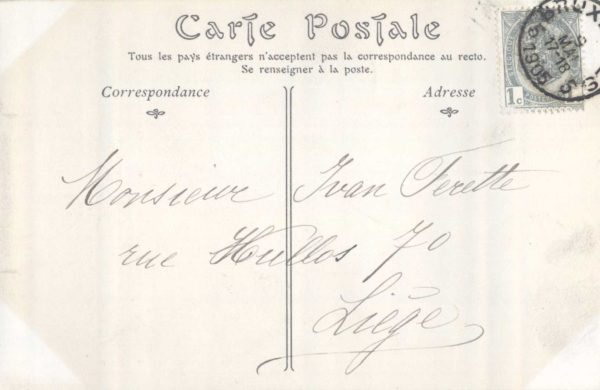 Carte Postale
Tous les pays étrangers n'acceptent pas la correspondance au recto.
Se renseigner à la poste.
Correspondance
Adresse
1c
1905
Monsieur Ivan Ferette
rue Hullos 70
Liége